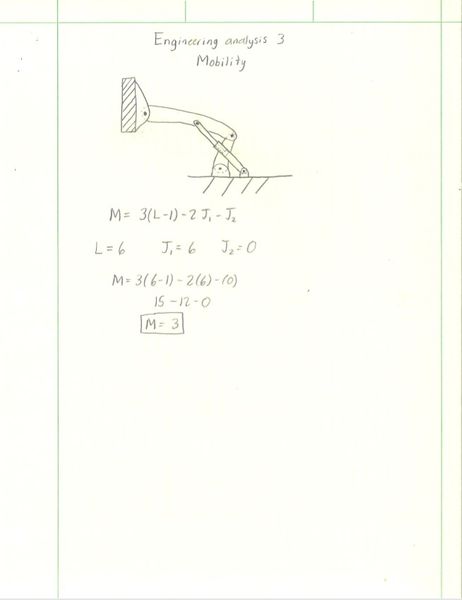 Engineering analysis 3
Mobility
M= 3(L-1)-2J₁-J₂
L=6 J₁=6 J₂=0
M=3(6-1)-2(6)-(0)
15-12-0
M= 3